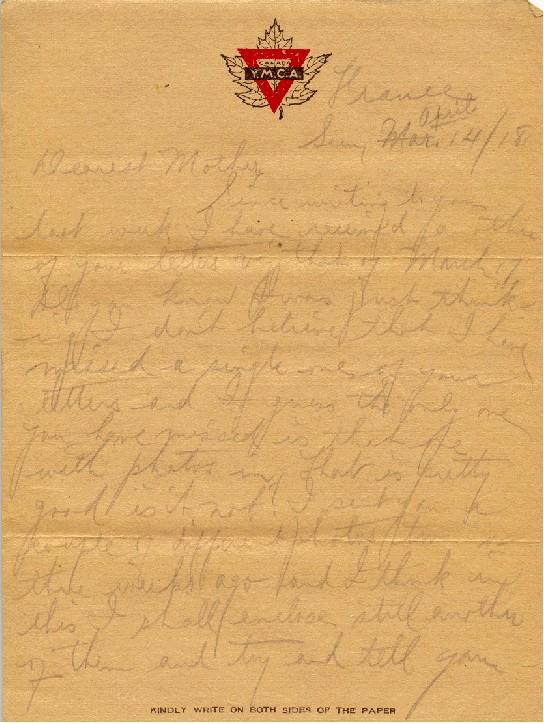 CANADIAN
Y.M.C.A.
France
April
Sun, Mar. 14/18
Dearest Mother,
Since writing to you
last week I have received another
of your letters viz that of March 17
Do you know I was just think-
ing I don't believe that I have
missed a single one of your
letters and I guess the only one
you have missed is that one
with photos in, that is pretty
good is it not. I sent you a
couple of different photos two or
three weeks ago and I think in
this I shall enclose still another
of them and try and tell you
KINDLY WRITE ON BOTH SIDES OF THE PAPER